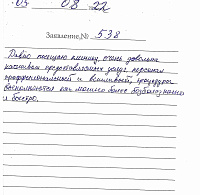 05 08 22
Заявление № 538
Давно посещаю клинику, очень довольна
качеством предоставляемых услуг, персонал
профессиональный и вежливый, процедуры
выполняются как можно более безболезненно
и быстро.